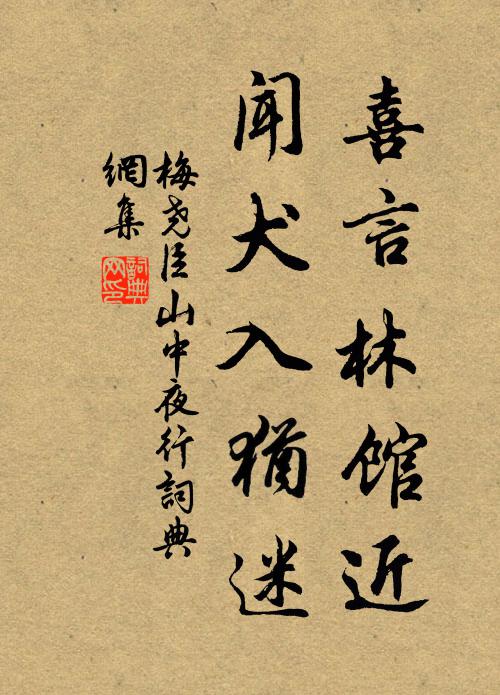 喜言林館近
聞犬入猶迷
梅堯臣山中夜行詞典
網集
詞典網印